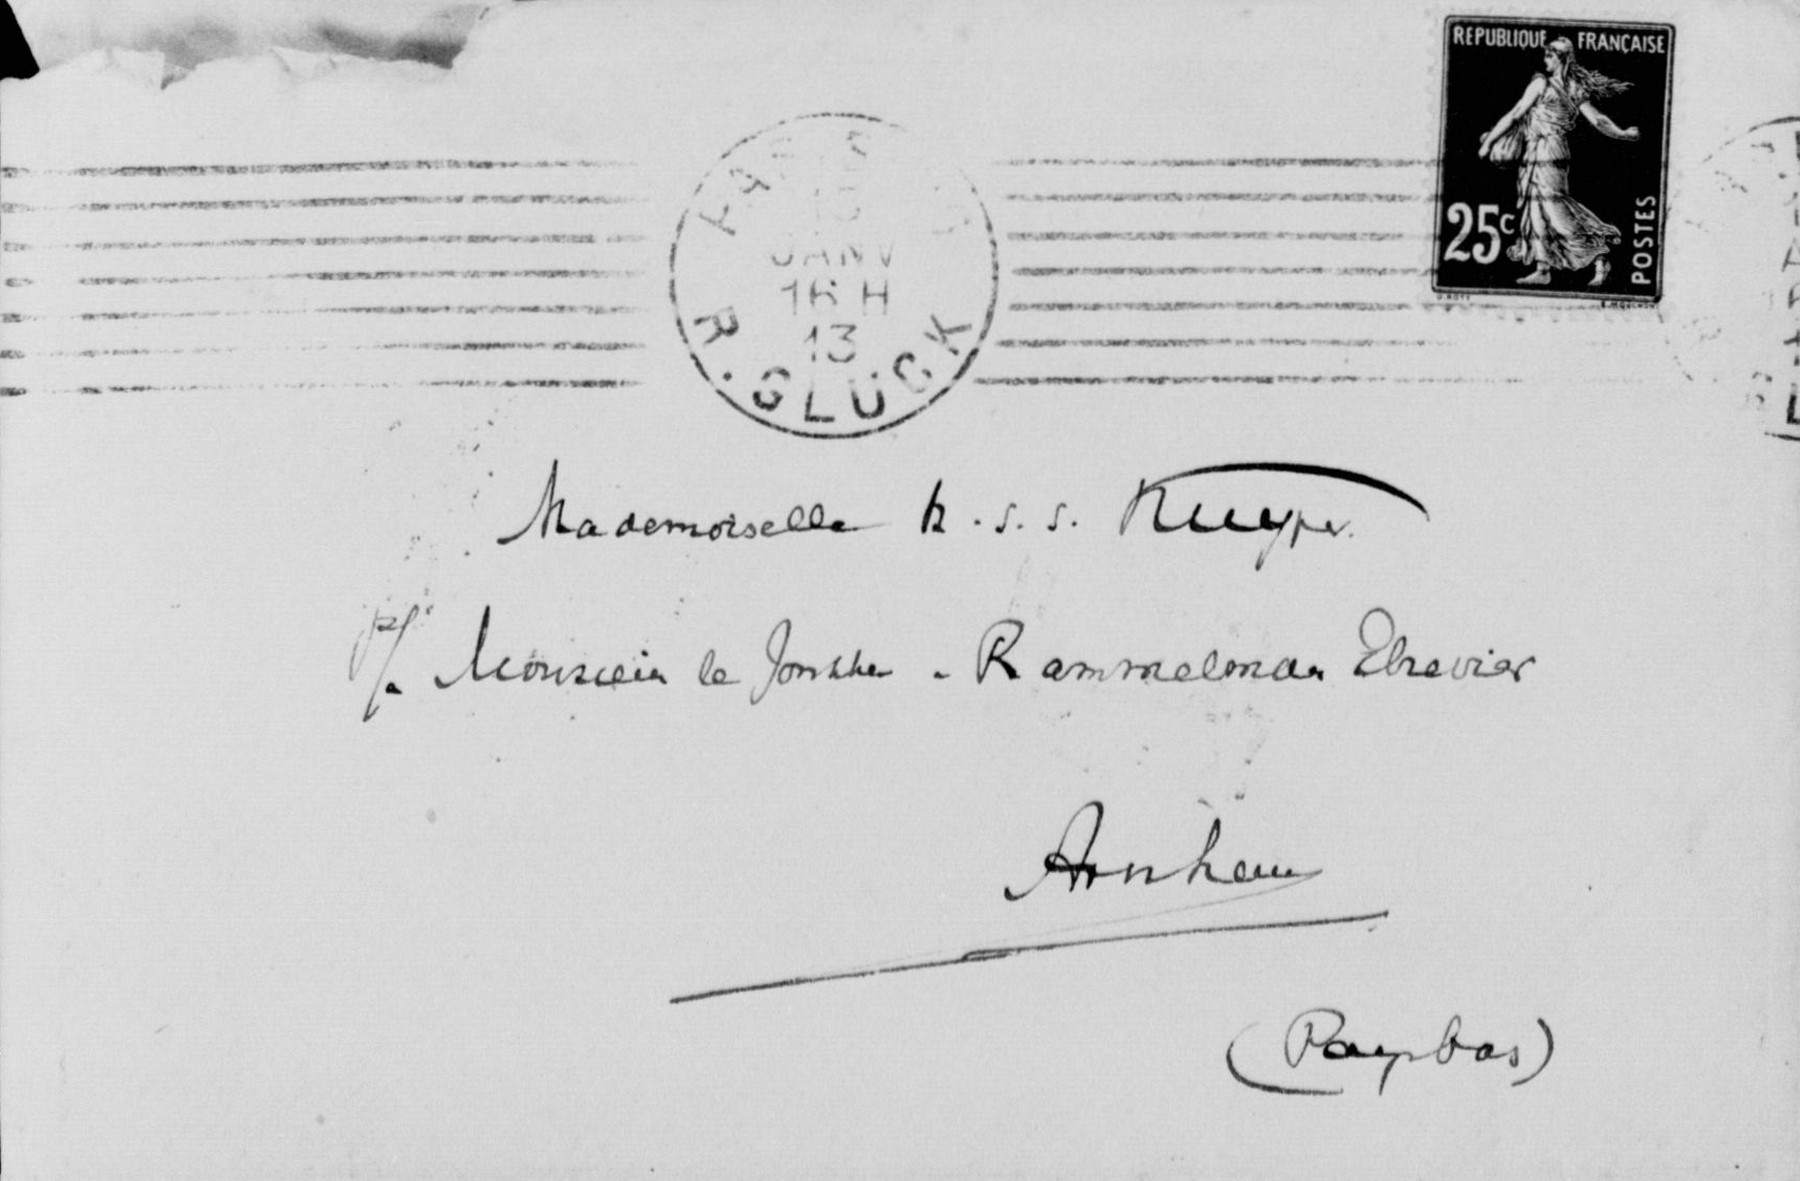 RÉPUBLIQUE FRANÇAISE
25c
POSTES
JANV
16 H
13
R. GLUCK
Mademoiselle h. s. s. Kuyper.
Monsieur le Jonkher - Rammelman Elsevier
Arnhem
(Pays bas)